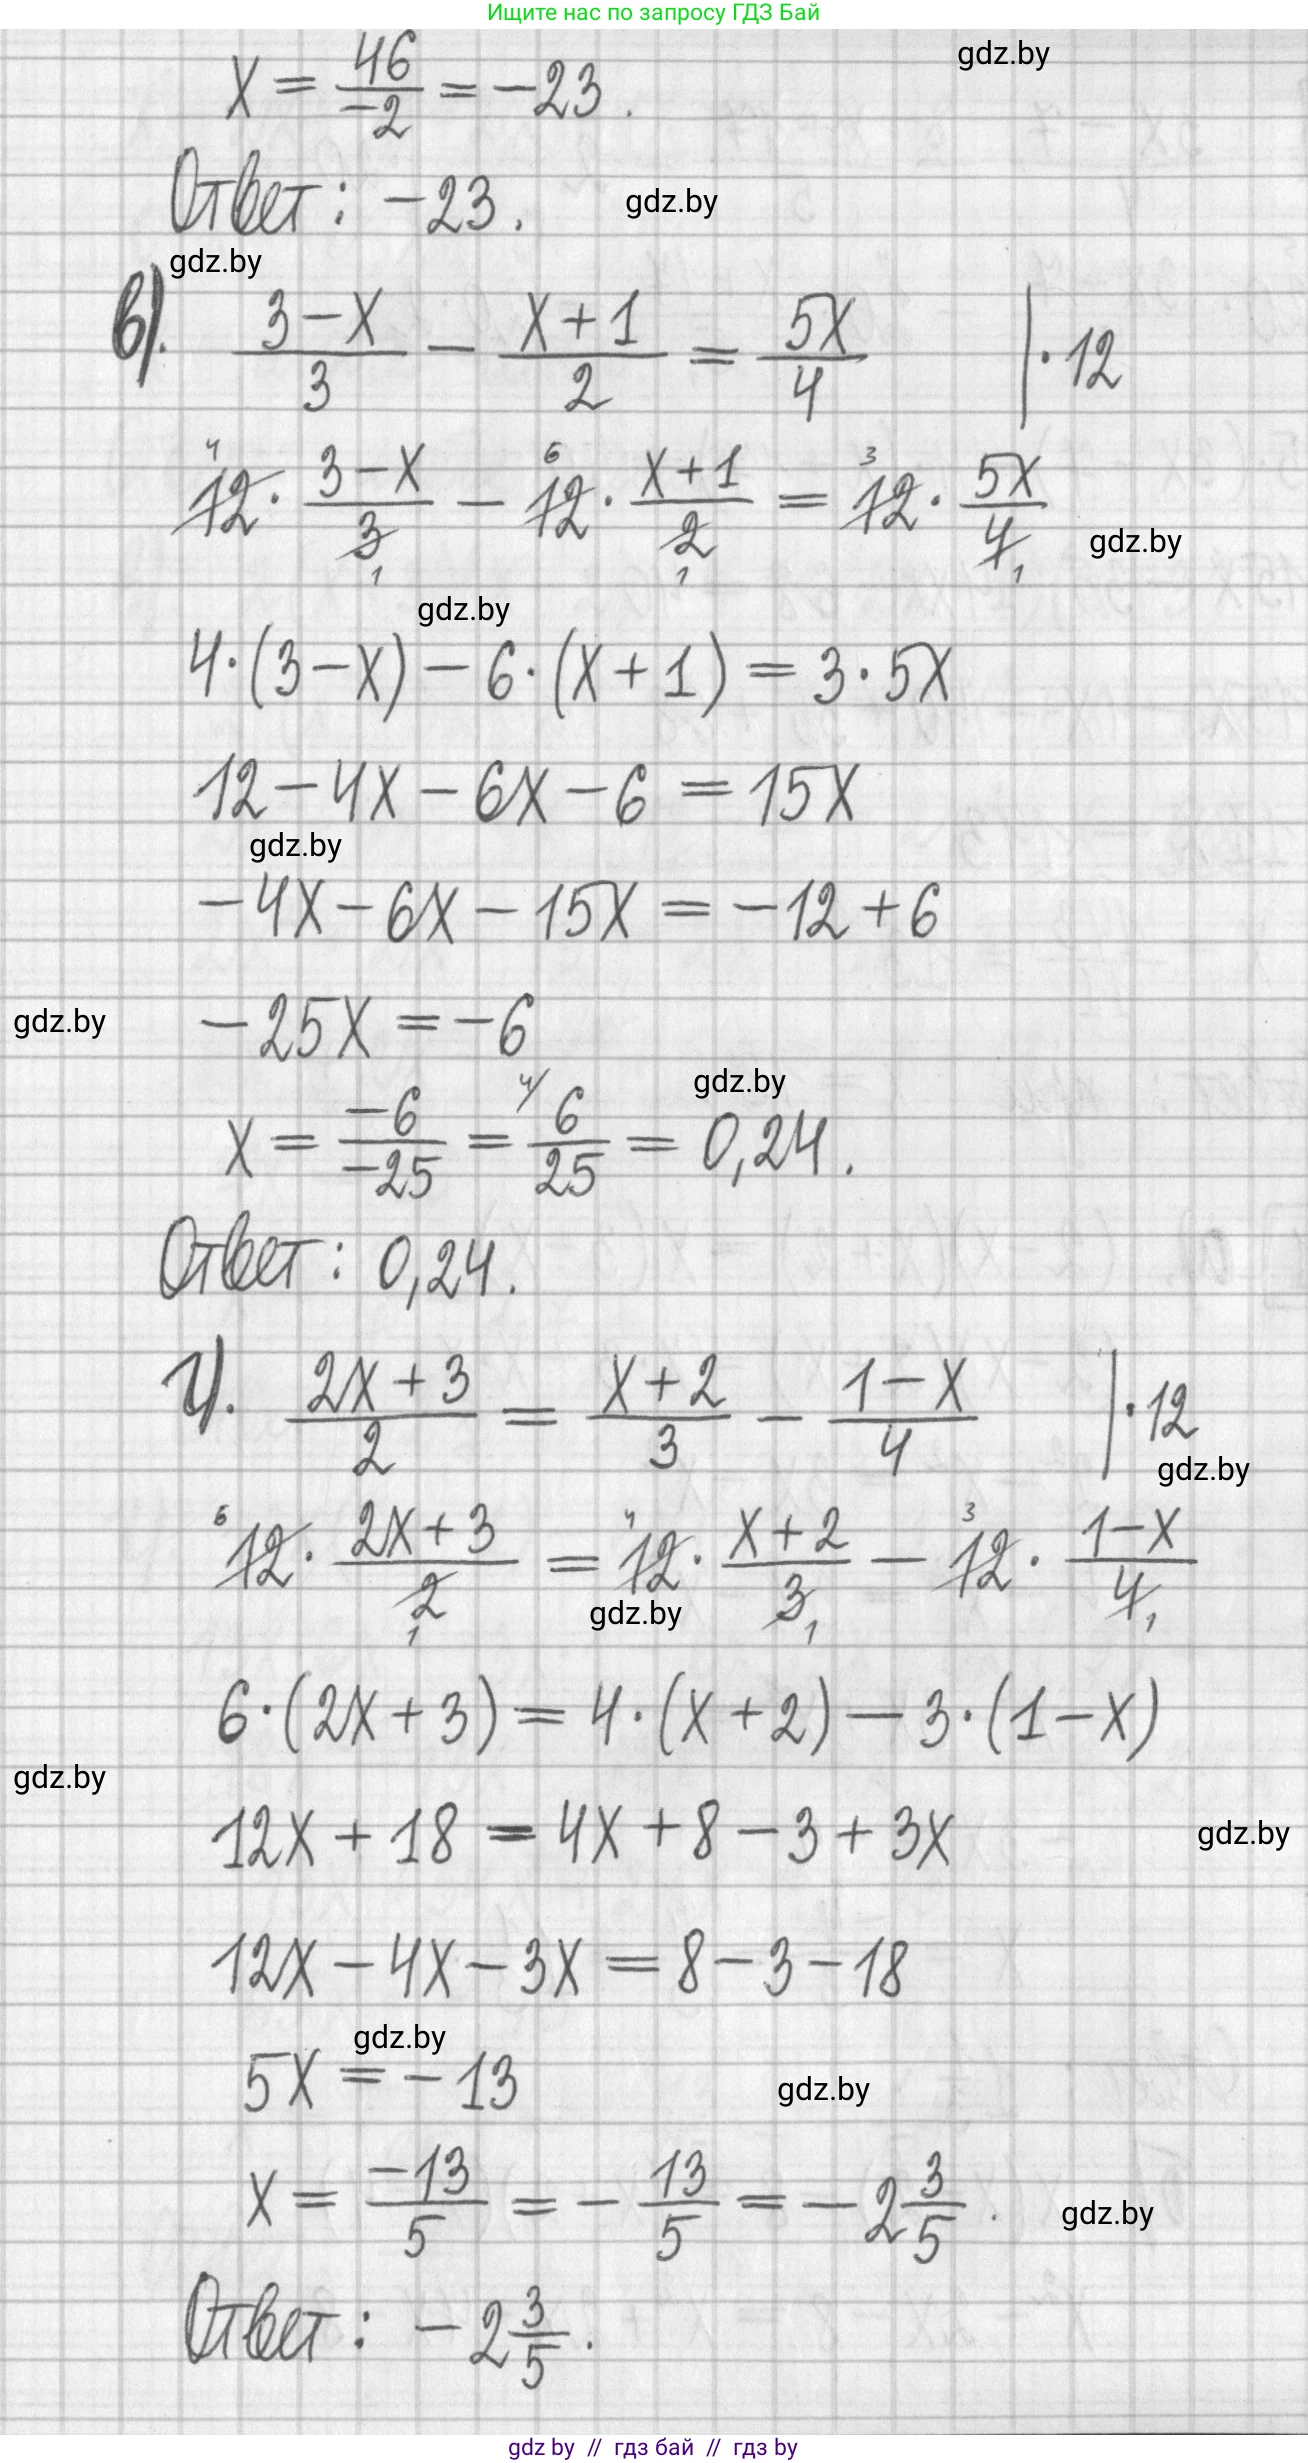 Ищите нас по запросу ГДЗ Бай
gdz.by
x = 46/-2 = -23.
Ответ: -23.
gdz.by
gdz.by
в). (3-x)/3 - (x+1)/2 = 5x/4 | ·12
4 6 3
12 · (3-x)/3 - 12 · (x+1)/2 = 12 · 5x/4
1 1 1
gdz.by
gdz.by
4·(3-x) - 6·(x+1) = 3·5x
12 - 4x - 6x - 6 = 15x
gdz.by
-4x - 6x - 15x = -12 + 6
gdz.by
-25x = -6
gdz.by
4/
x = -6/-25 = 6/25 = 0,24.
Ответ: 0,24.
г). (2x+3)/2 = (x+2)/3 - (1-x)/4 | ·12
gdz.by
6 4 3
12 · (2x+3)/2 = 12 · (x+2)/3 - 12 · (1-x)/4
1 1 1
gdz.by
6·(2x+3) = 4·(x+2) - 3·(1-x)
gdz.by
12x + 18 = 4x + 8 - 3 + 3x
gdz.by
12x - 4x - 3x = 8 - 3 - 18
gdz.by
5x = -13
gdz.by
x = -13/5 = -13/5 = -2 3/5.
gdz.by
Ответ: -2 3/5.
gdz by // гдз бай // гдз by